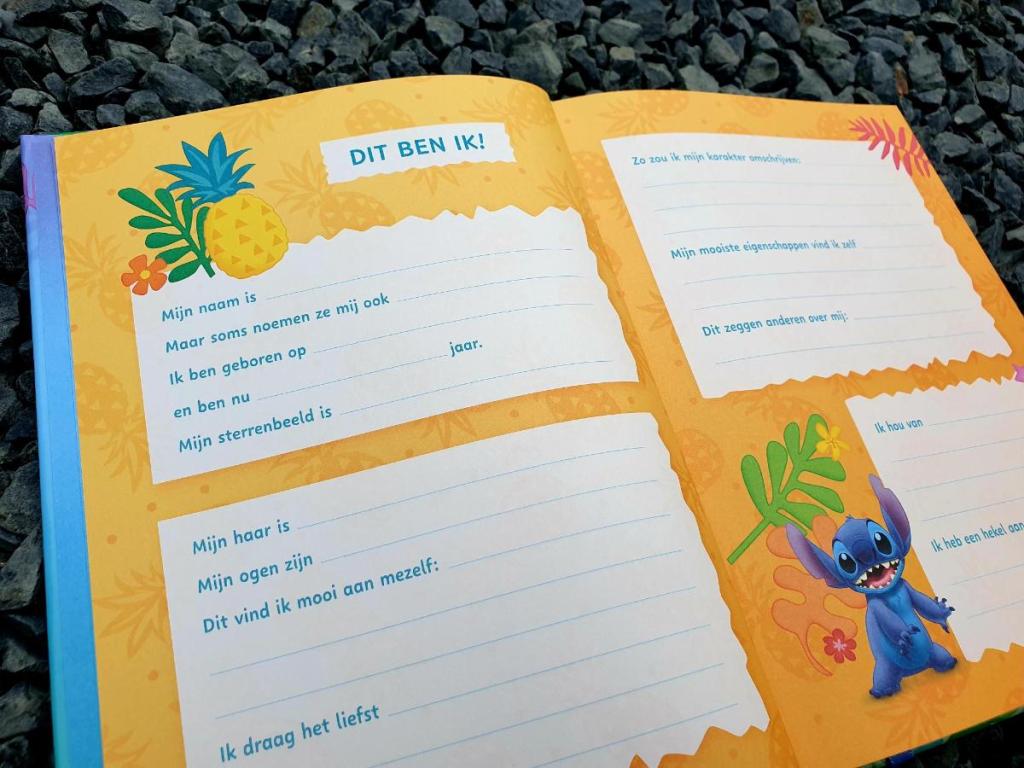 DIT BEN IK!
Mijn naam is
Maar soms noemen ze mij ook
Ik ben geboren op
en ben nu jaar.
Mijn sterrenbeeld is
Mijn haar is
Mijn ogen zijn
Dit vind ik mooi aan mezelf:
Ik draag het liefst
Zo zou ik mijn karakter omschrijven:
Mijn mooiste eigenschappen vind ik zelf
Dit zeggen anderen over mij:
Ik hou van
Ik heb een hekel aan